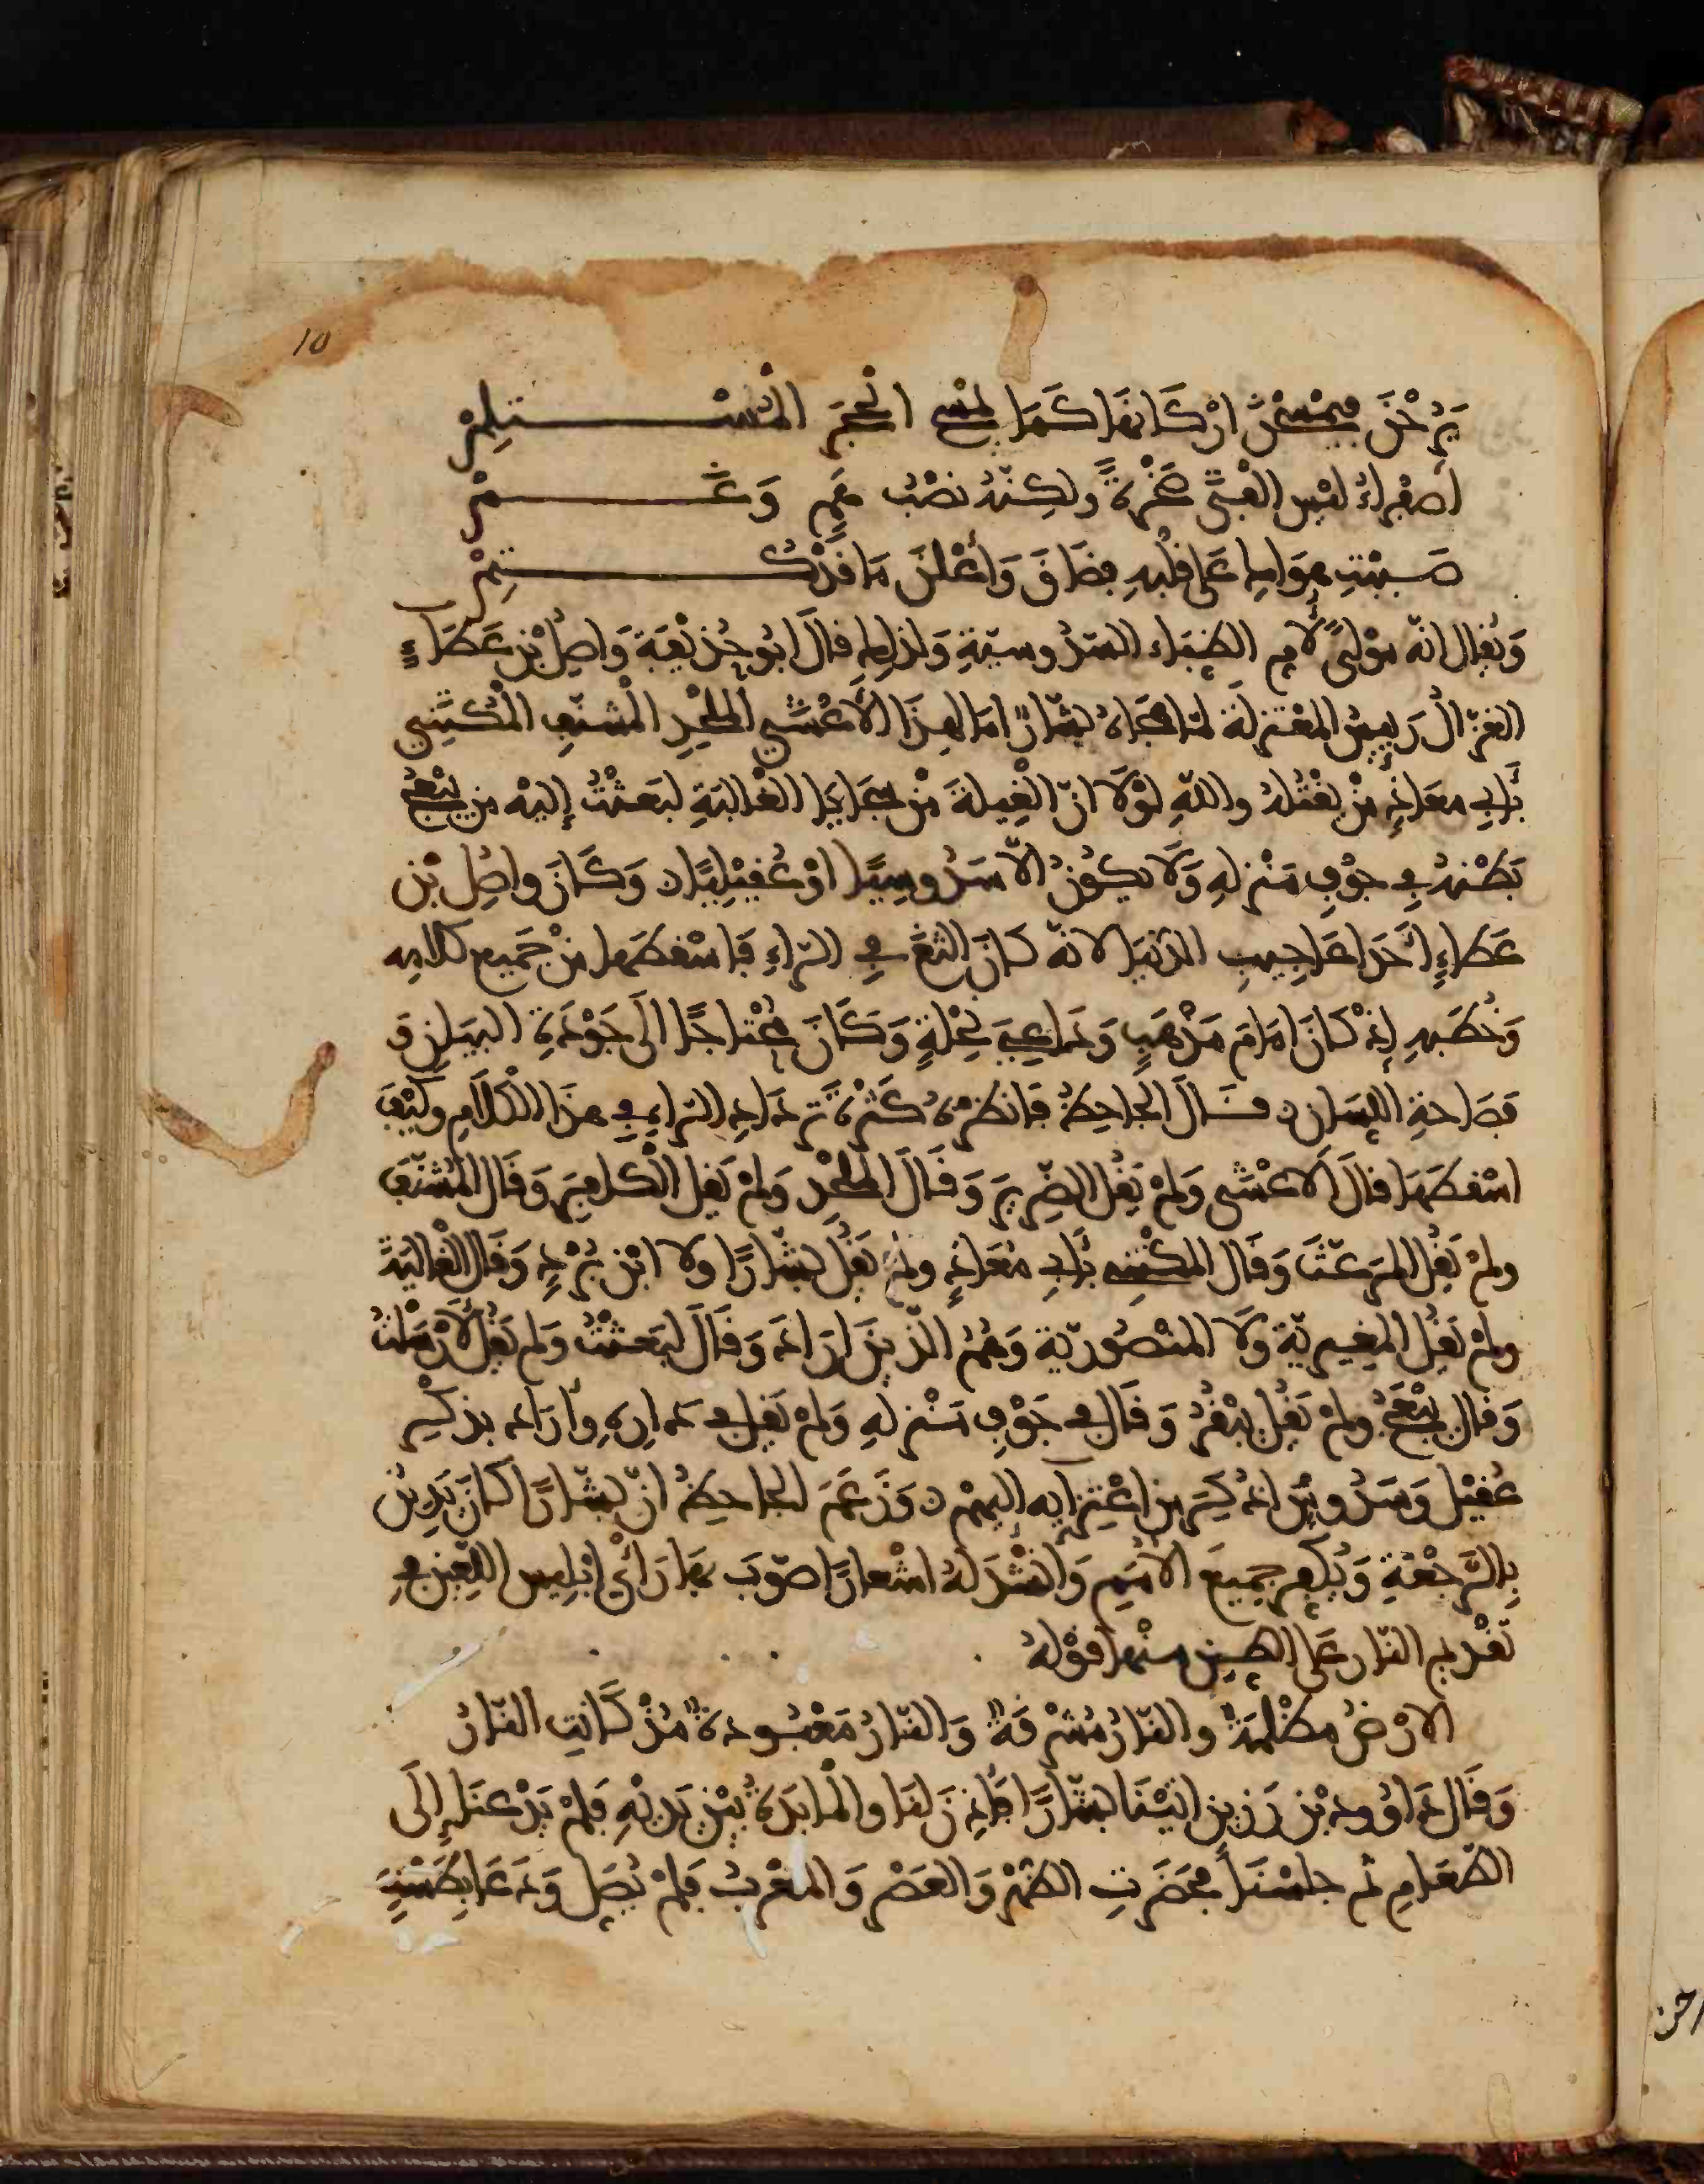 10
يَرُحْنَ فيمْسَحْنَ ارْكَانهَا كَمَا يَمْسَح الْحَجَرَ المُسْـــتلِمْ
اصفراءُ ليْس الفتَى صَخْرةً ولكِنّهُ نصْبُ هَمٍ وَغَـــمْ
صَبَبْتِ هوَاكِ عَلى قلْبهِ فضَاقَ وَأعْلنَ مَا قَدْ كُـــتِمْ
وَيُقال انّه موْلًى لأم الظِبَاء السَدُوسيّةِ وَلذلِك قالَ ابُو حُذيْفَةَ وَاصِلُ بْن عَطَاءٍ
الغزّالُ رَييسُ المعْتزلةِ لمّا هجَاهُ بشّارٌ امَا لهذَا الأعْمَى المُلْحِدِ المُشنّفِ المُكَتَنى
بأَبي معَاذٍ مَنْ يقْتُلهُ واللّهِ لوْلاَ انّ الْغِيلةَ مِنْ سجَايَا الغَاليَةِ لبَعثتُ إليْه من يبْعَجُ
بَطْنهُ في جوْفِ مَنْزلهِ وَلاَ يكُونُ الاّ سَدُوسِيًا اوْ عُقيْلِيًا ٥ وَكَانَ واصِل بْن
عَطاءٍ أَحَدَ اعَاجِيبِ الدّنيَا لانّه كانَ الثغَ في الرّاءِ فَاسْقطَها منْ جَميع كلامِه
وَخُطَبهِ إذ كَانَ امَامَ مَذْهَبٍ وَدَاعيَةَ نِحْلةٍ وَكَانَ مُحْتاجًا الَى جَوْدَةِ البيَانِ وَ
فصَاحةِ اللسَانِ ٥ قَــالَ الجاحِظُ فانظرْ كَثرةَ تردَادِ الرّاءِ في هذَا الْكَلاَمِ وكيْفَ
اسْقطَهَا قالَ الاعْمَى وَلمْ يَقُلِ الضّرِيرَ وَقَالَ المُلْحِدِ وَلمْ يَقلِ الْكافِرَ وَقَال المُشنّفَ
ولمْ يَقُلِ المُرَعّثَ وَقَال المُكْتَنِي بأَبي مُعَاذٍ ولمْ يقُلْ بشّارًا ولا ابْنَ بُرْدٍ وَقَال الْغاليَةِ
ولمْ يَقُلِ المُغِيرِيّة وَلاَ المنْصُوريّة وَهُمُ الّذينَ ارَادَ وَقَالَ لبَعثتُ وَلم يَقُلْ لأَرْسَلتُ
وَقال يبْعَجُ ولمْ يَقُلْ يبْقُرُ وَقَال في جَوْفِ مَنْزلهِ وَلمْ يَقُل في دَارهِ وأرَادَ بذكْرِ
عُقيْل وَسَدُوسٍ مَا ذُكِرَ من اعْتزَايه اليهمْ ٥ وَزَعَمَ الجاحِظُ انّ بشّارًا كانَ يَدِينُ
بِالرَّجْعةِ وَيُكفِر جميعَ الأمَمِ وَانْشدَ لهُ اشْعارًا صوّبَ بهَا رَأْيَ ابْلِيس اللعِين في
تقْدِيم النّار عَلى الطِين منْها قوْلهُ
الارْضُ مظْلِمَةٌ والنّارُ مُشرِقةٌ وَالنّارُ مَعْبُودةٌ مُذْ كَانَتِ النّارُ
وَقَالَ دَاوُود بْن رَزين اتيْنَا بشّارًا فأذِنَ لنا والمَايدَةُ بيْن يَديْهِ فَلمْ يَدْعنَا إِلَى
الطّعَامِ ثم جلسْنَا فحَضَرَتِ الظهْر وَالعَصْر وَالمَغْربُ فَلمْ يُصَلِ وَدَعَا بِطَسْتٍ